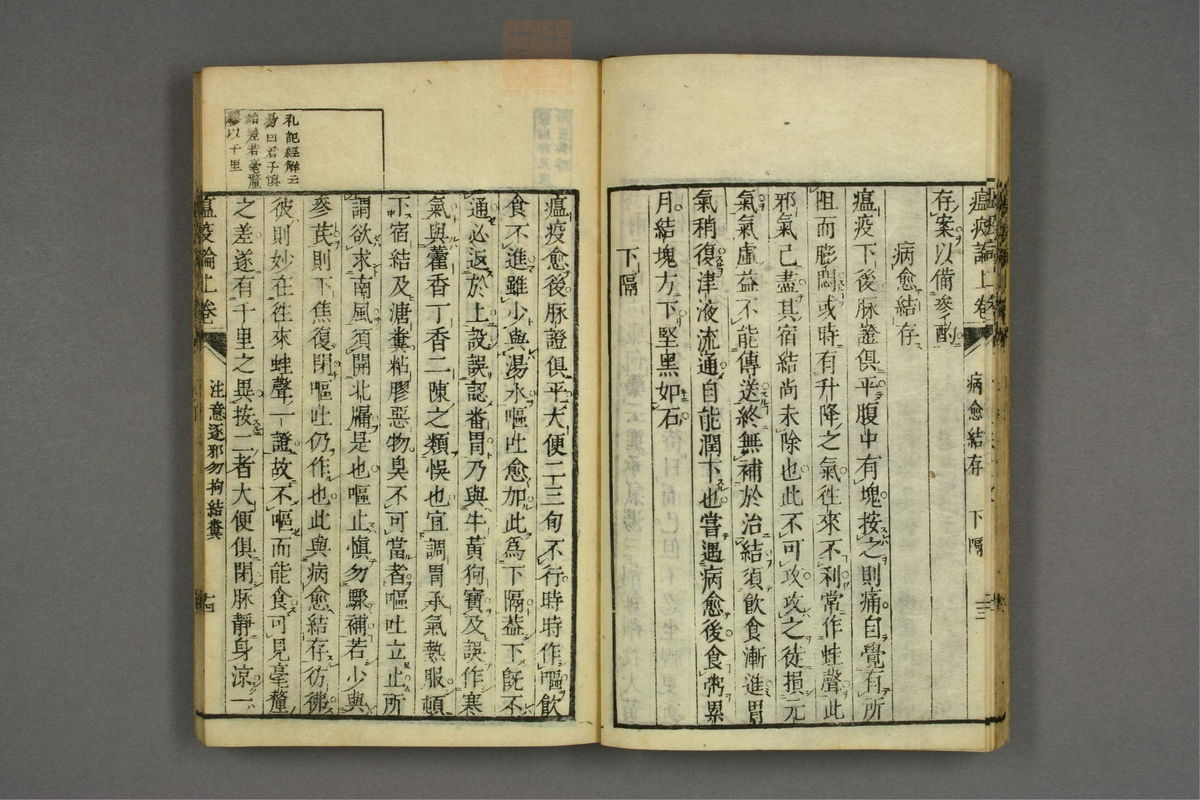 瘟疫論上卷
病愈結存
下隔
十三
存案以備參酌
病愈結存
瘟疫下後脉證俱平腹中有塊按之則痛自覺有所
阻而膨悶或時有升降之氣往來不利常作蛙聲此
邪氣已盡其宿結尚未除也此不可攻攻之徒損元
氣氣虛益不能傳送終無補於治結須飲食漸進胃
氣稍復津液流通自能潤下也嘗遇病愈後食粥累
月結塊方下堅黑如石
下隔
瘟疫愈後脉證俱平大便二三旬不行時時作嘔飲
食不進雖少與湯水嘔吐愈加此為下隔蓋下旣不
通必返於上設誤認番胃乃與牛黃狗寶及誤作寒
氣與藿香丁香二陳之類悞也宜調胃承氣熱服頓
下宿結及溏糞粘膠惡物臭不可當者嘔吐立止所
謂欲求南風須開北牖是也嘔止慎勿驟補若少與
參芪則下焦復閉嘔吐仍作也此與病愈結存彷彿
彼則妙在往來蛙聲一證故不嘔而能食可見毫釐
之差遂有千里之異按二者大便俱閉脉靜身涼一
礼記經解云
易曰君子慎
始差若毫釐
繆以千里
瘟疫論上卷
注意逐邪勿拘結糞
十四